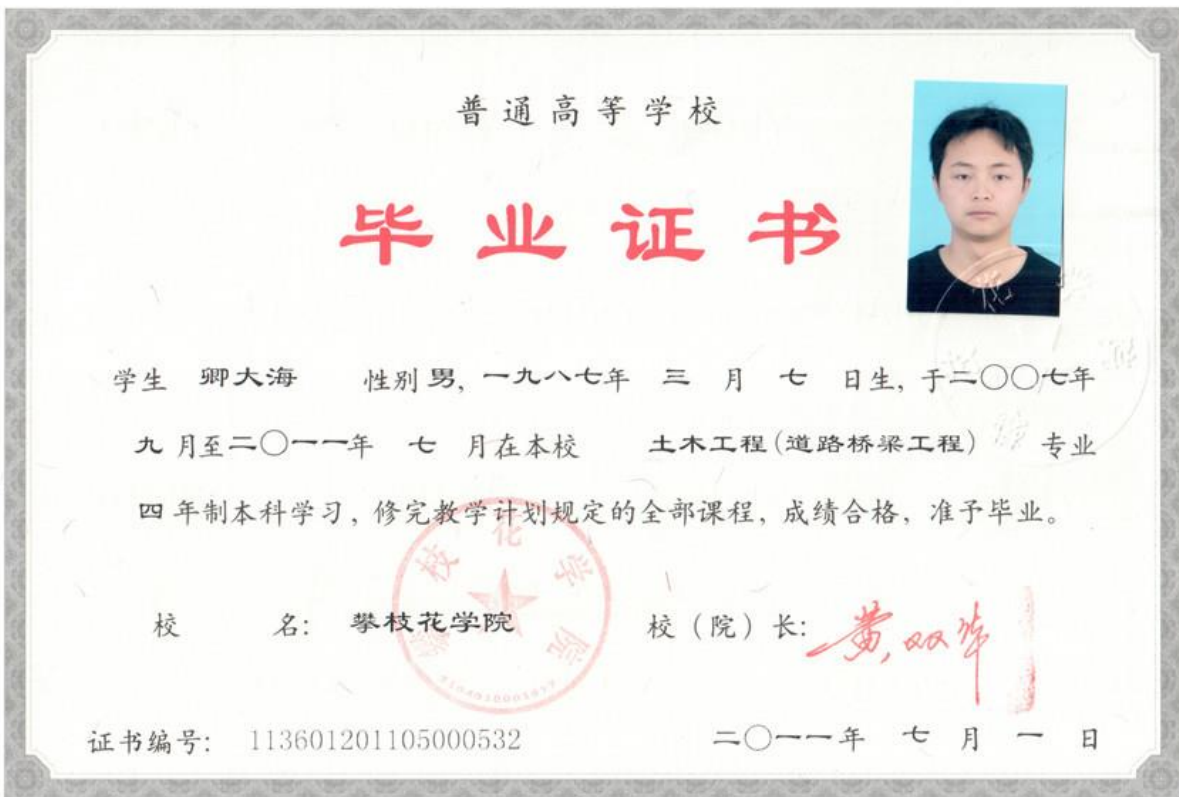 普通高等学校
毕业证书
学生 卿大海 性别 男, 一九八七年 三 月 七 日生, 于二〇〇七年
九 月至二〇一一年 七 月在本校 土木工程(道路桥梁工程) 专业
四 年制本科学习, 修完教学计划规定的全部课程, 成绩合格, 准予毕业。
攀枝花学院
校 名: 攀枝花学院 校(院)长: 黄双华
证书编号: 113601201105000532 二〇一一年 七 月 一 日